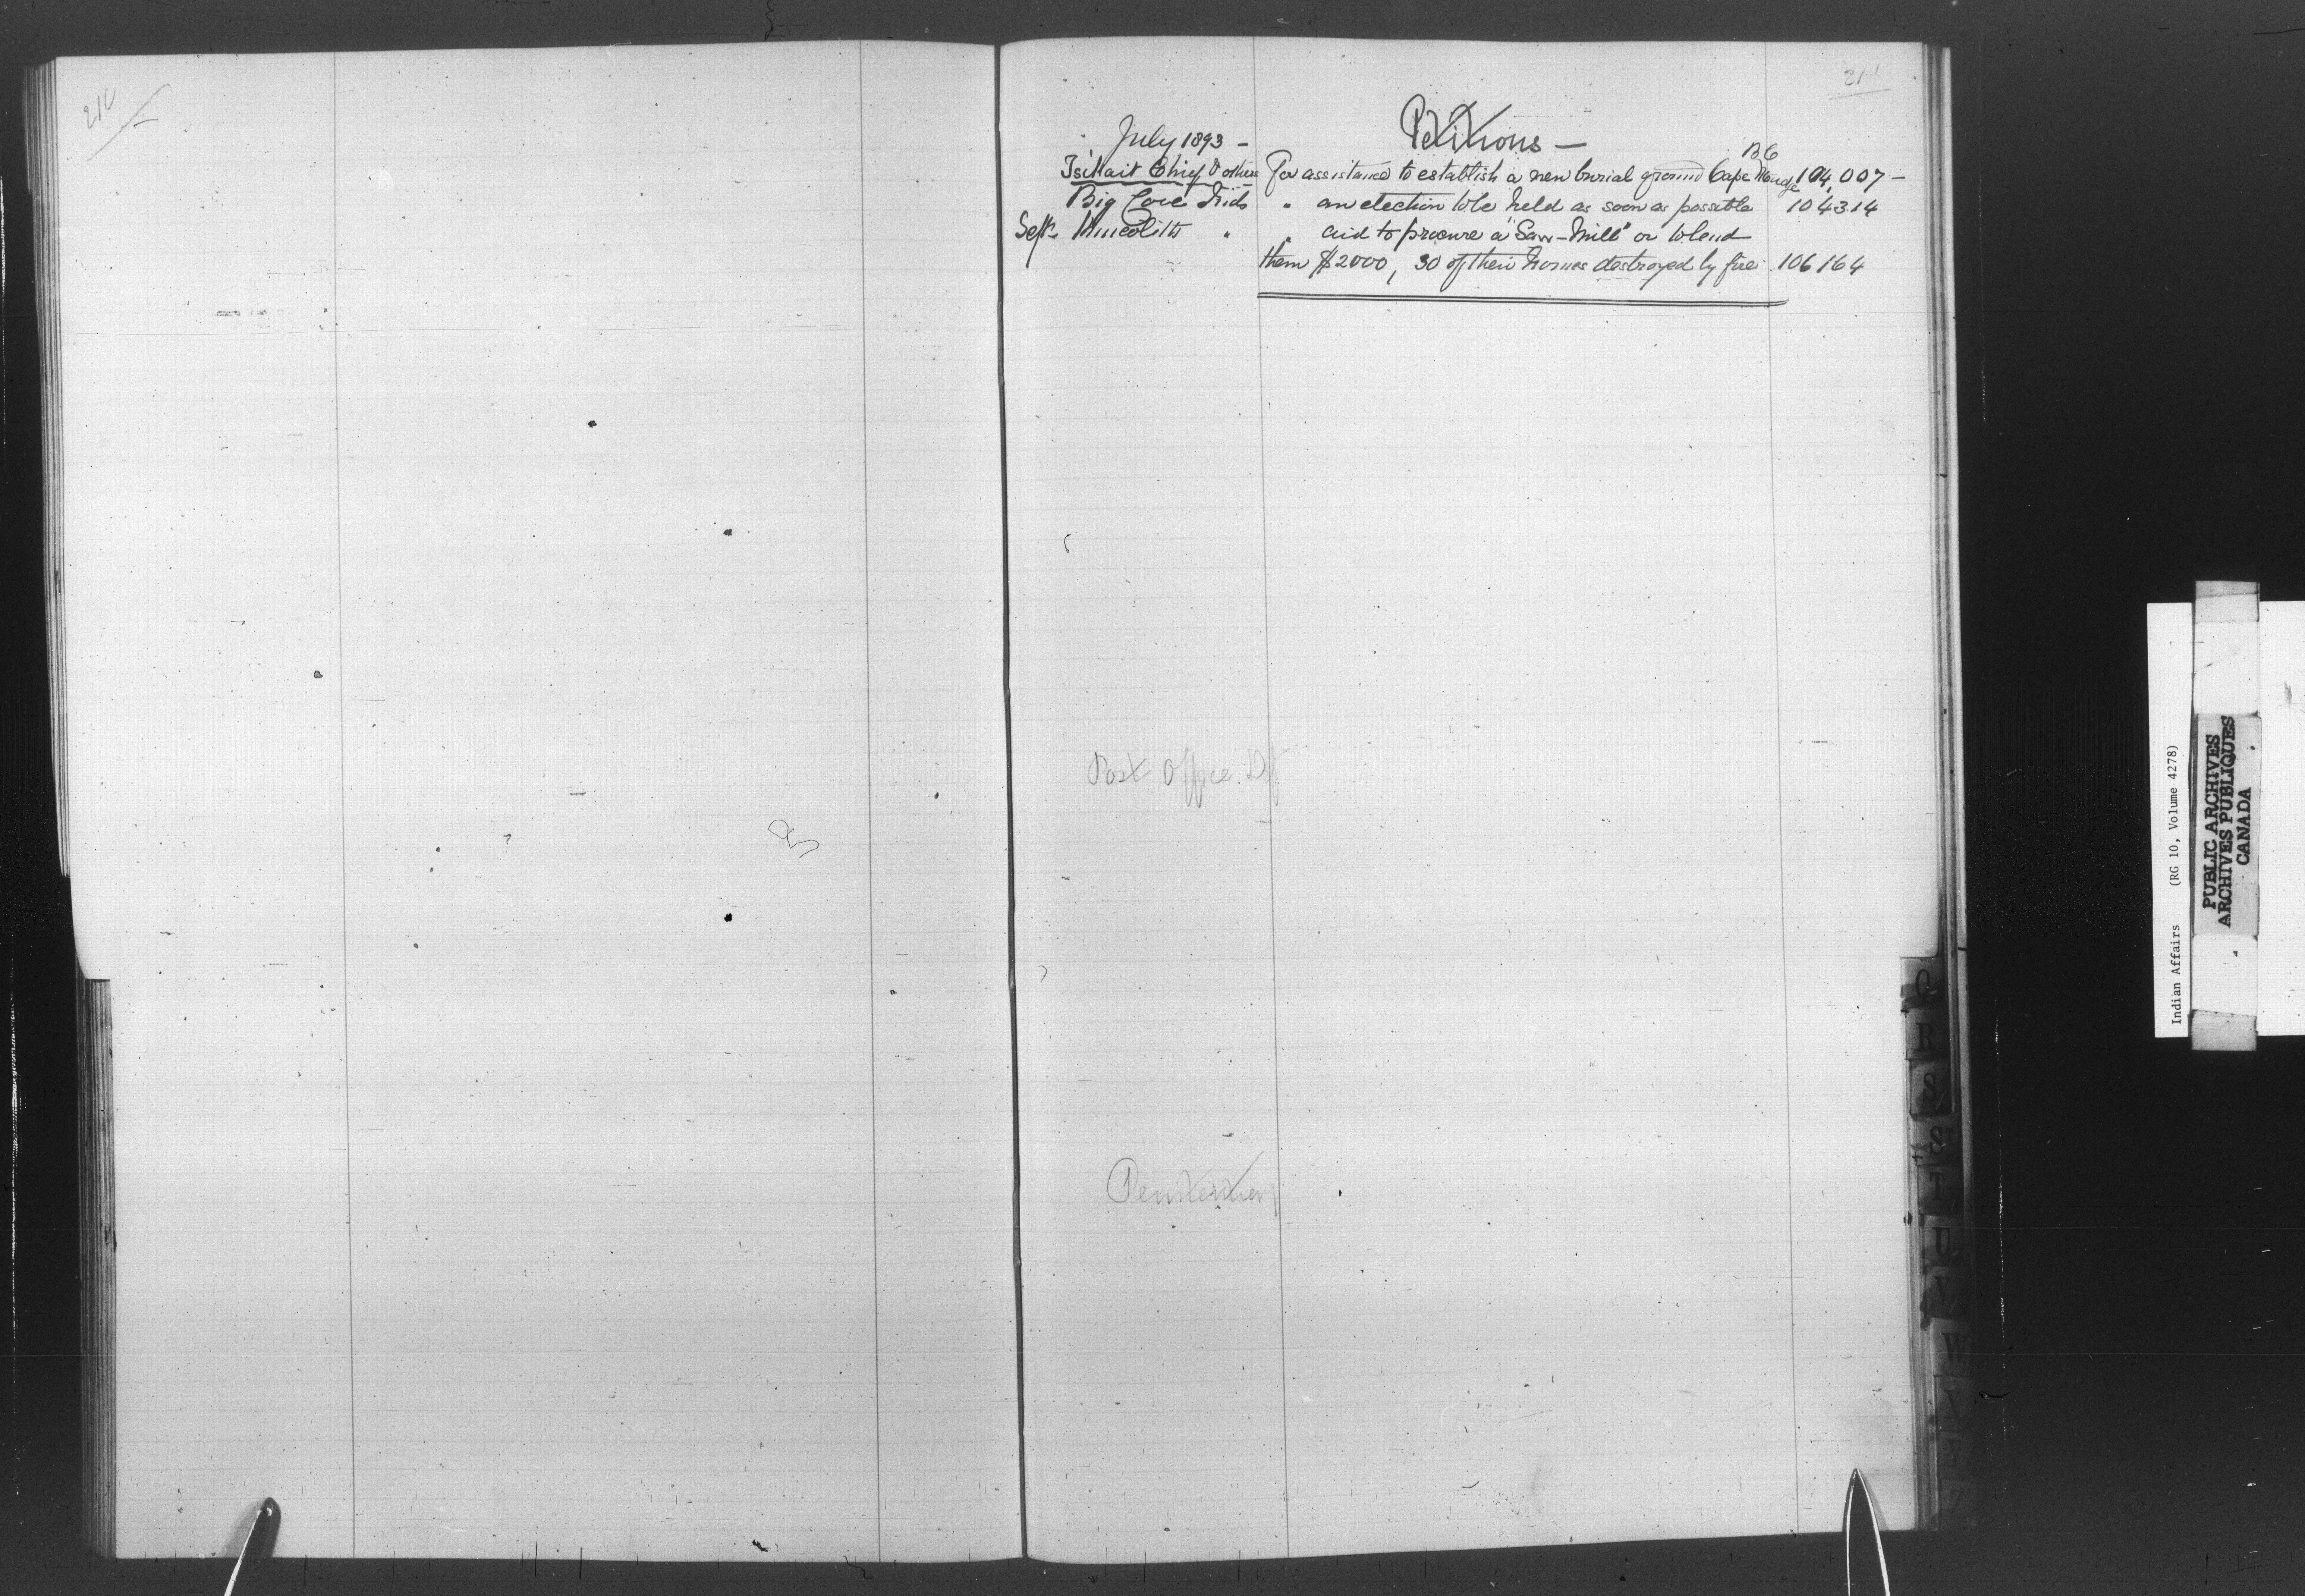 210
211
Petitions —
July 1893 —
Tsitlait Chief & others For assistance to establish a new burial ground Cape Mudge BC 104,007 —
Big Cove Inds " an election to be held as soon as possible 104314
Sept. Kincolith " " aid to procure a "Saw-Mill" or to lend
them $2000, 30 of their homes destroyed by fire 106164
Post Office Dpt
Penitentiary
Q
R
S
T
U
V
W
Indian Affairs (RG 10, Volume 4278)
PUBLIC ARCHIVES
ARCHIVES PUBLIQUES
CANADA